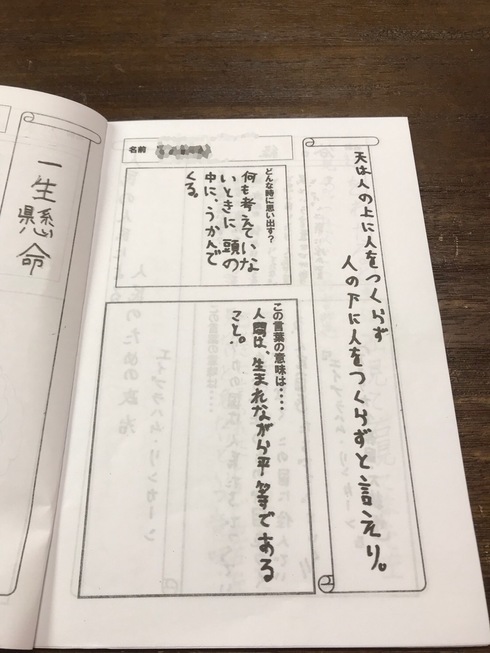 天は人の上に人をつくらず
人の下に人をつくらずと言えり。
名前
どんな時に思い出す?
何も考えていな
いときに頭の
中に、うかんで
くる。
この言葉の意味は・・・・
人間は、生まれながら平等である
こと。
一生懸命
人民のための政治
エイブラハム・リンカーン